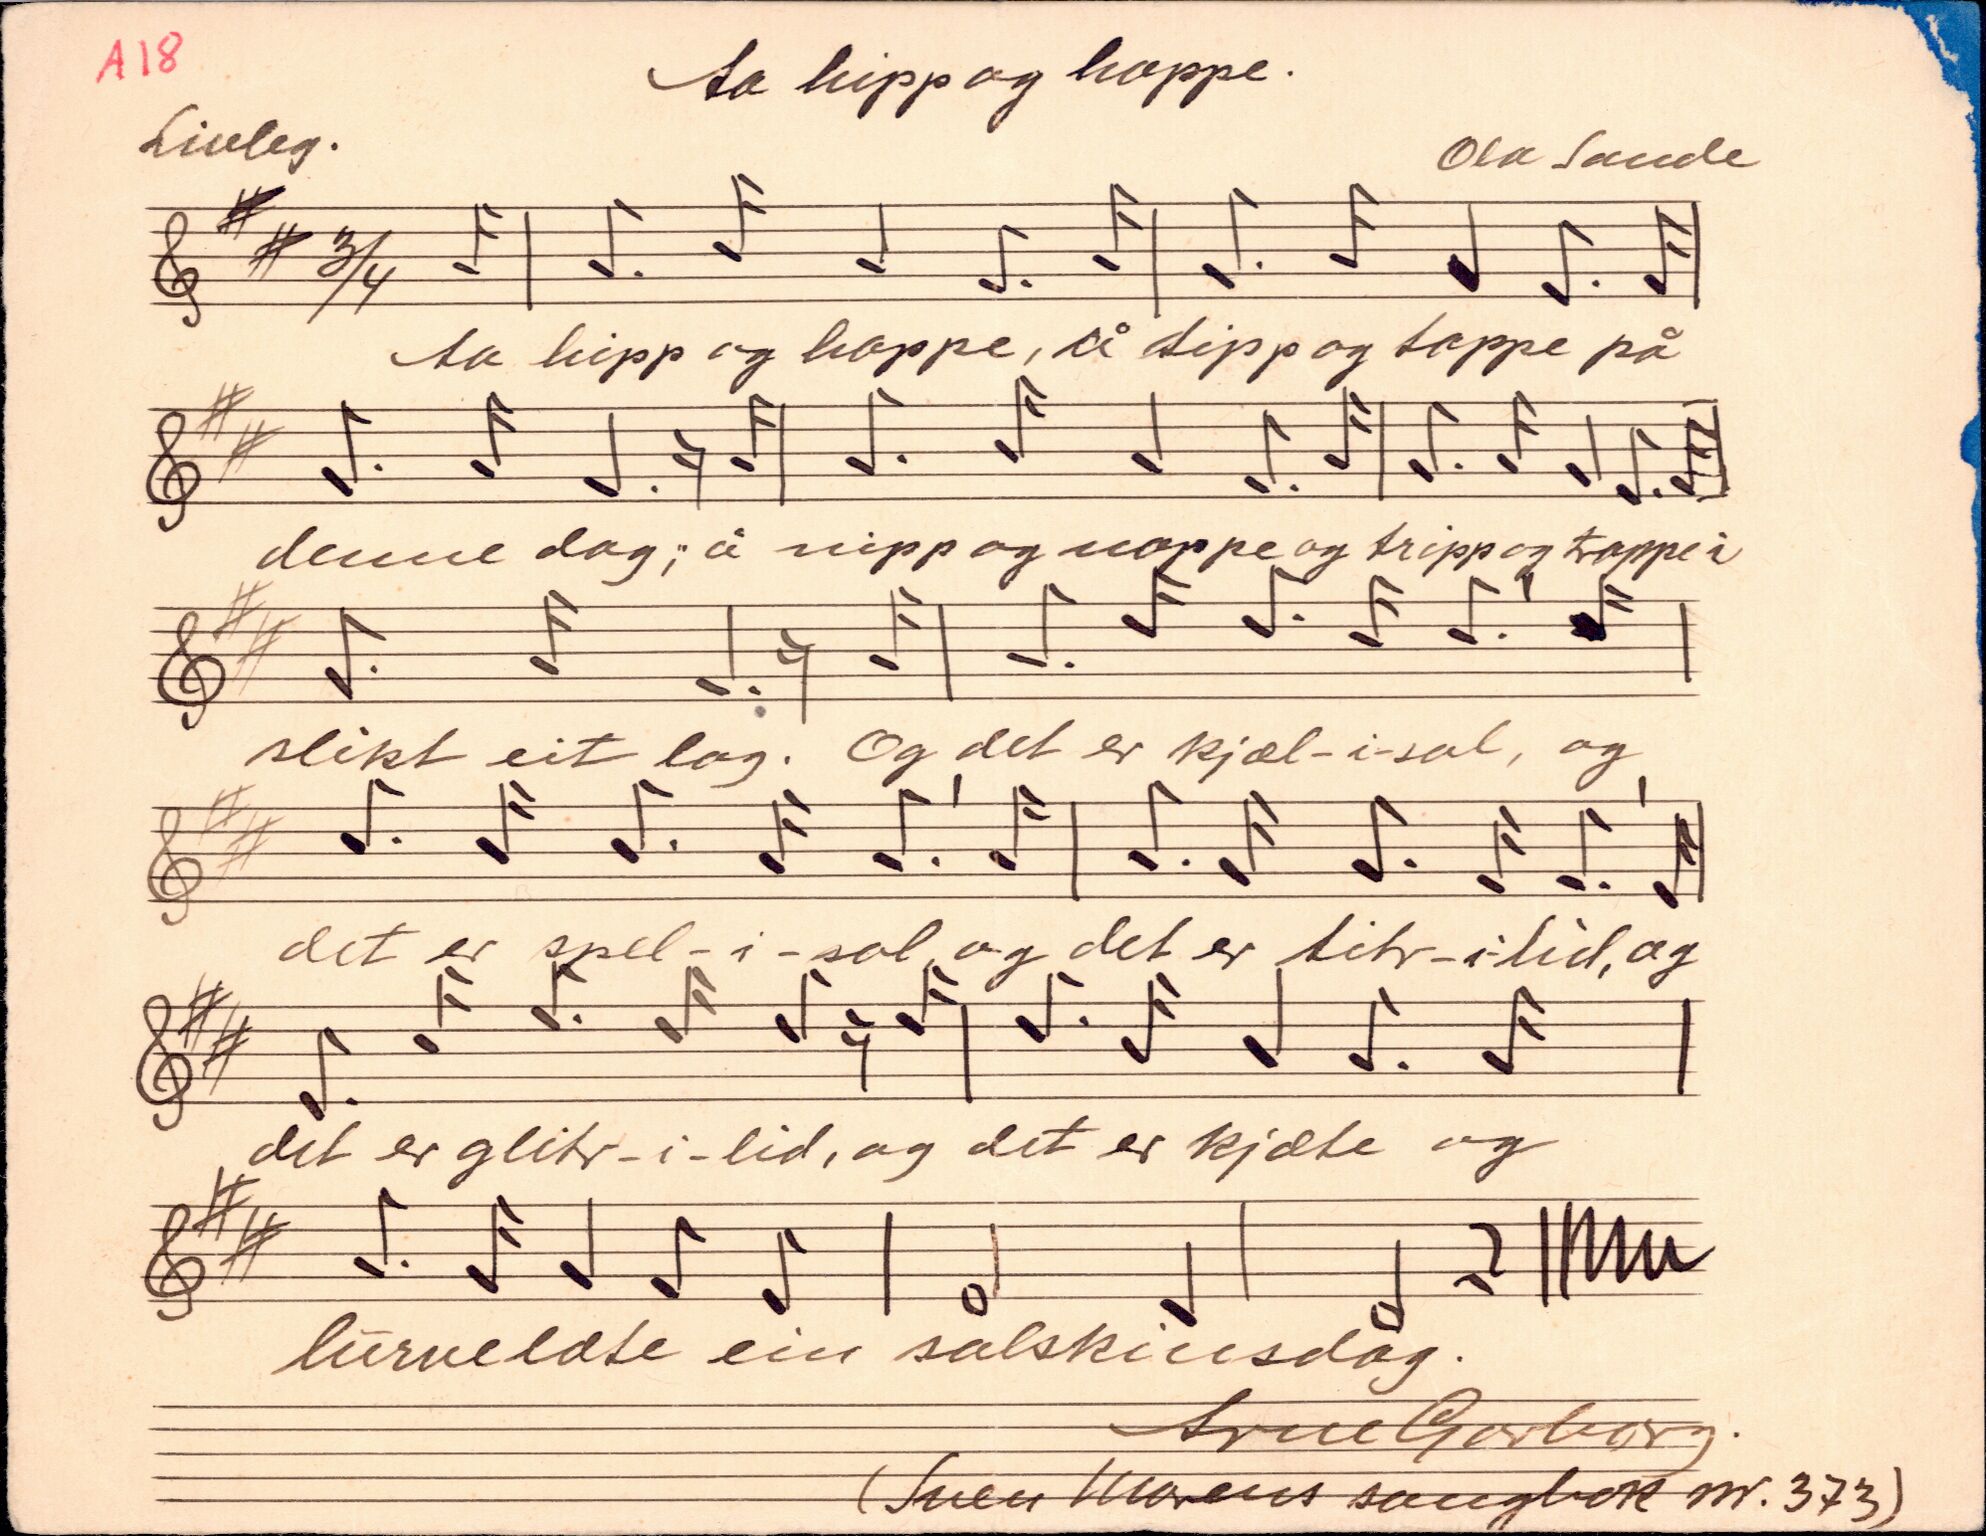 A18
Aa hipp og hoppe.
Livleg.
Ola Sande
3/4
Aa hipp og hoppe, å tipp og toppe på
denne dag; å nipp og noppe og tripp og troppe i
slikt eit lag. Og det er kjæl-i-sol, og
det er spel-i-sol, og det er titr-i-lid, og
det er glitr-i-lid, og det er kjæte og
lurvelæte ein solskinsdag.
Arne Garborg.
(Sven Morens songbok nr. 373)